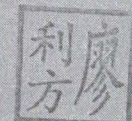 廖利方